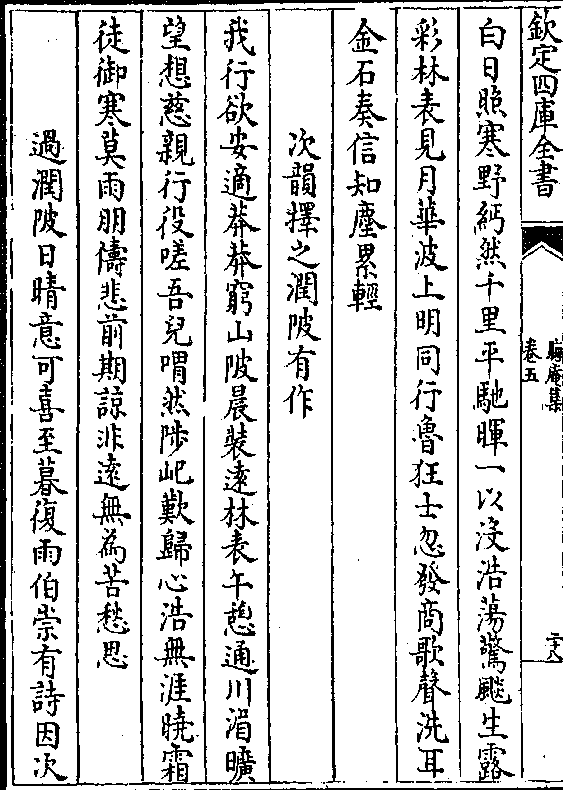 欽定四庫全書
晦庵集
卷五
二十八
白日照寒野紆然千里平馳暉一以沒浩蕩驚飈生露
彩林表見月華波上明同行魯狂士忽發商歌聲洗耳
金石奏信知塵累輕
次韻擇之潤陂有作
我行欲安適莽莽窮山陂晨裝遠林表午憩通川湄曠
望想慈親行役嗟吾兒喟然陟屺歎歸心浩無涯曉霜
徒御寒莫雨朋儔悲前期諒非遠無為苦愁思
過潤陂日晴意可喜至暮復雨伯崇有詩因次